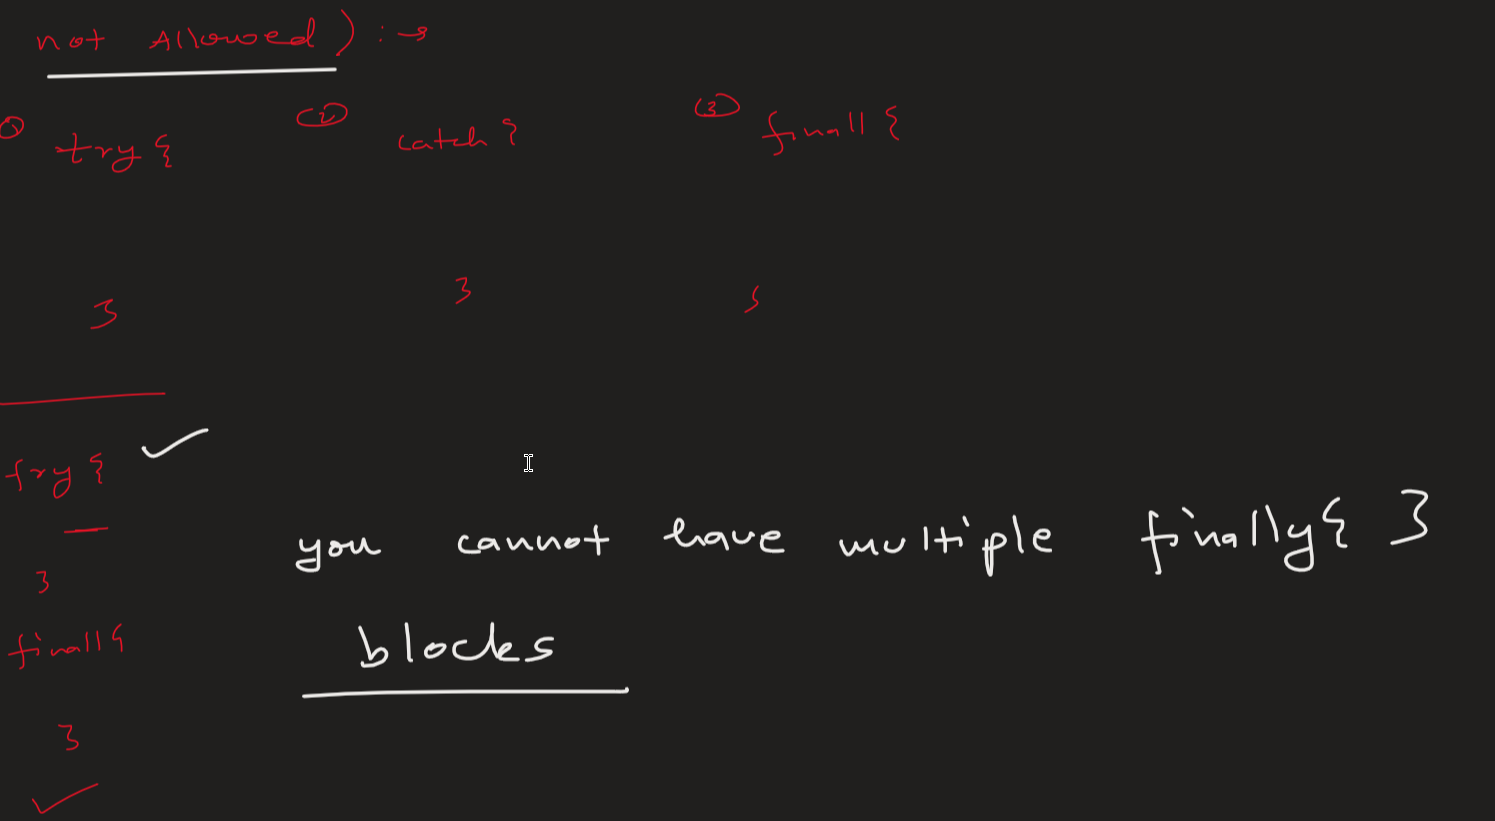 not Allowed) :→
① try {
② catch {
③ finall {
}
}
}
try {
}
finall {
}
you cannot have multiple finally{ }
blocks